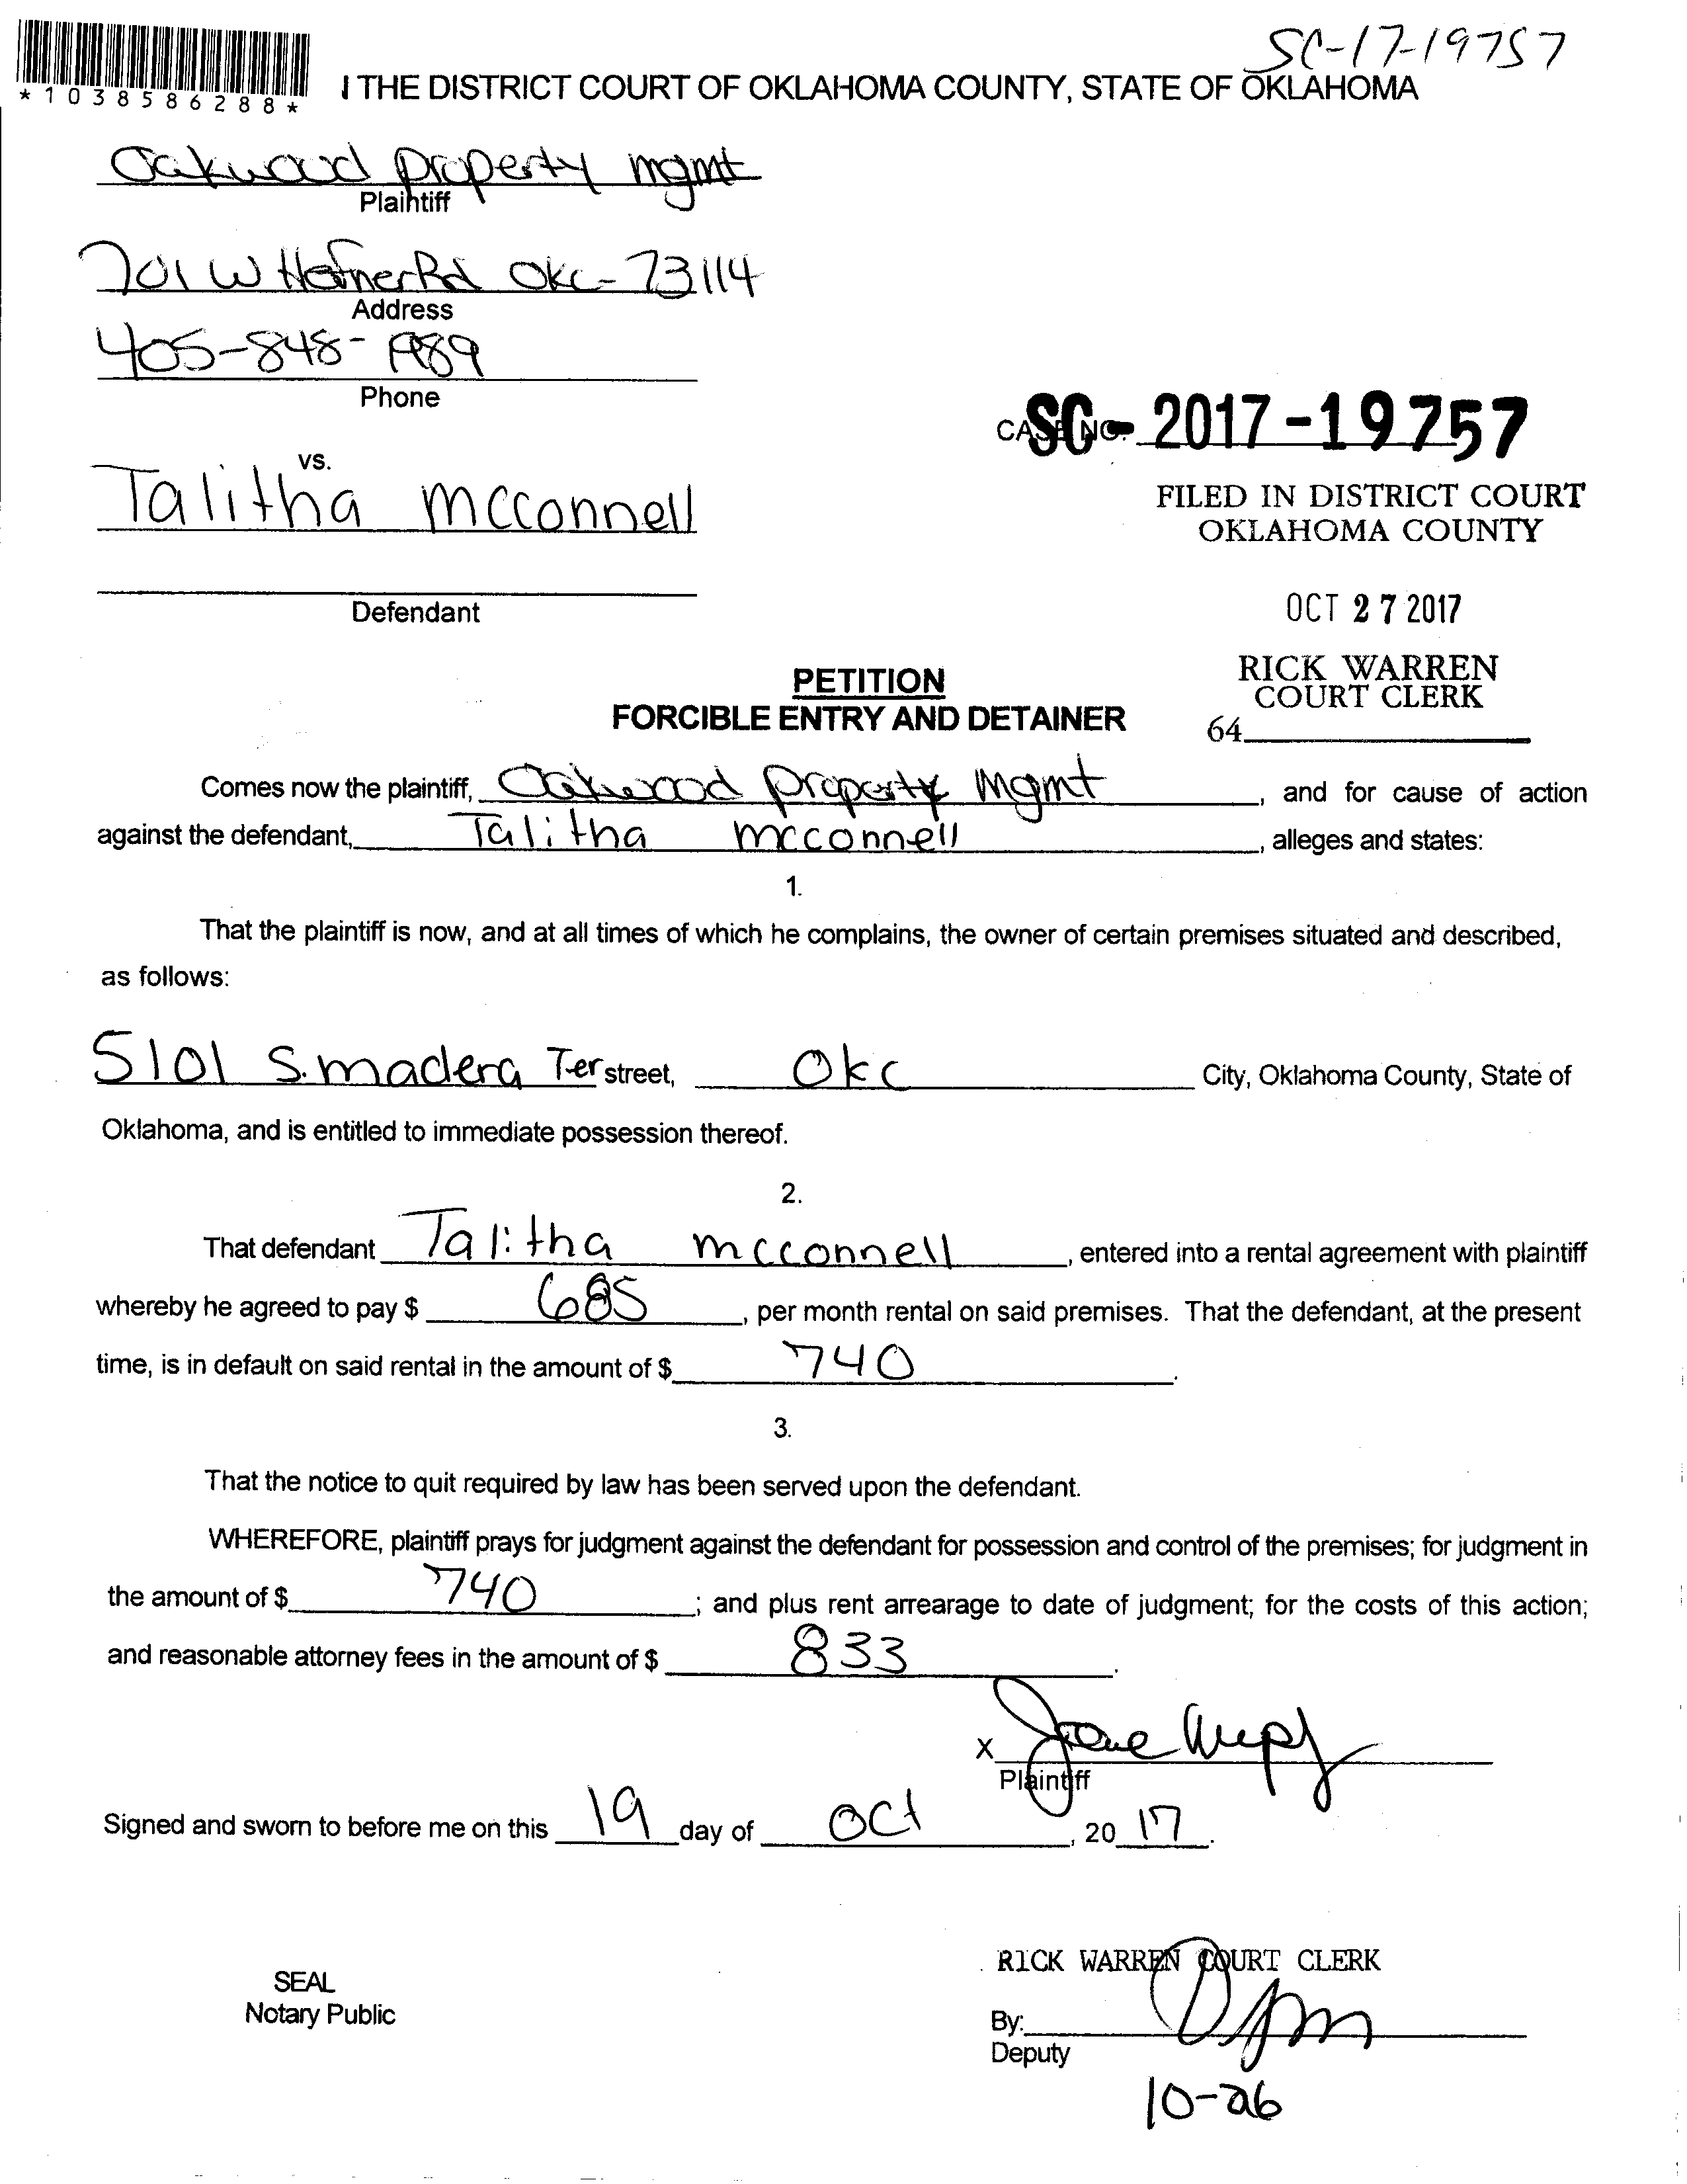 SC-17-19757
*1038586288*
THE DISTRICT COURT OF OKLAHOMA COUNTY, STATE OF OKLAHOMA
Oakwood Property mgmt
Plaintiff
701 W Hefner Rd OKC- 73114
Address
405-848-1989
Phone
CASE NO. SC - 2017 - 19757
vs.
Talitha mcconnell
FILED IN DISTRICT COURT
OKLAHOMA COUNTY
Defendant
OCT 27 2017
RICK WARREN
COURT CLERK
64
PETITION
FORCIBLE ENTRY AND DETAINER
Comes now the plaintiff, Oakwood Property Mgmt, and for cause of action
against the defendant, Talitha mcconnell, alleges and states:
1.
That the plaintiff is now, and at all times of which he complains, the owner of certain premises situated and described,
as follows:
5101 S. madera Ter street, OKC City, Oklahoma County, State of
Oklahoma, and is entitled to immediate possession thereof.
2.
That defendant Talitha mcconnell, entered into a rental agreement with plaintiff
whereby he agreed to pay $ 685, per month rental on said premises. That the defendant, at the present
time, is in default on said rental in the amount of $ 740.
3.
That the notice to quit required by law has been served upon the defendant.
WHEREFORE, plaintiff prays for judgment against the defendant for possession and control of the premises; for judgment in
the amount of $ 740; and plus rent arrearage to date of judgment; for the costs of this action;
and reasonable attorney fees in the amount of $ 833.
X
Plaintiff
Signed and sworn to before me on this 19 day of Oct, 20 17.
RICK WARREN COURT CLERK
SEAL
Notary Public
By:
Deputy
10-26